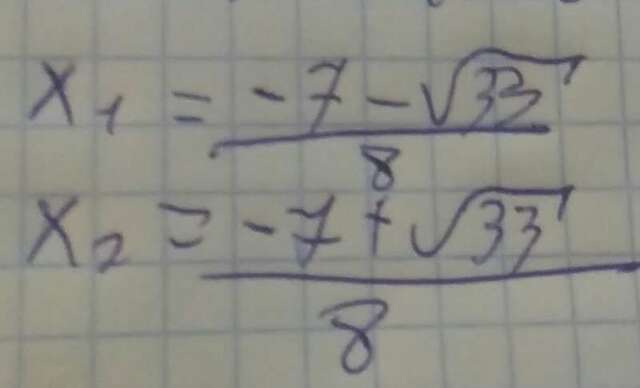 x₁ = (-7 - √33) / 8
x₂ = (-7 + √33) / 8